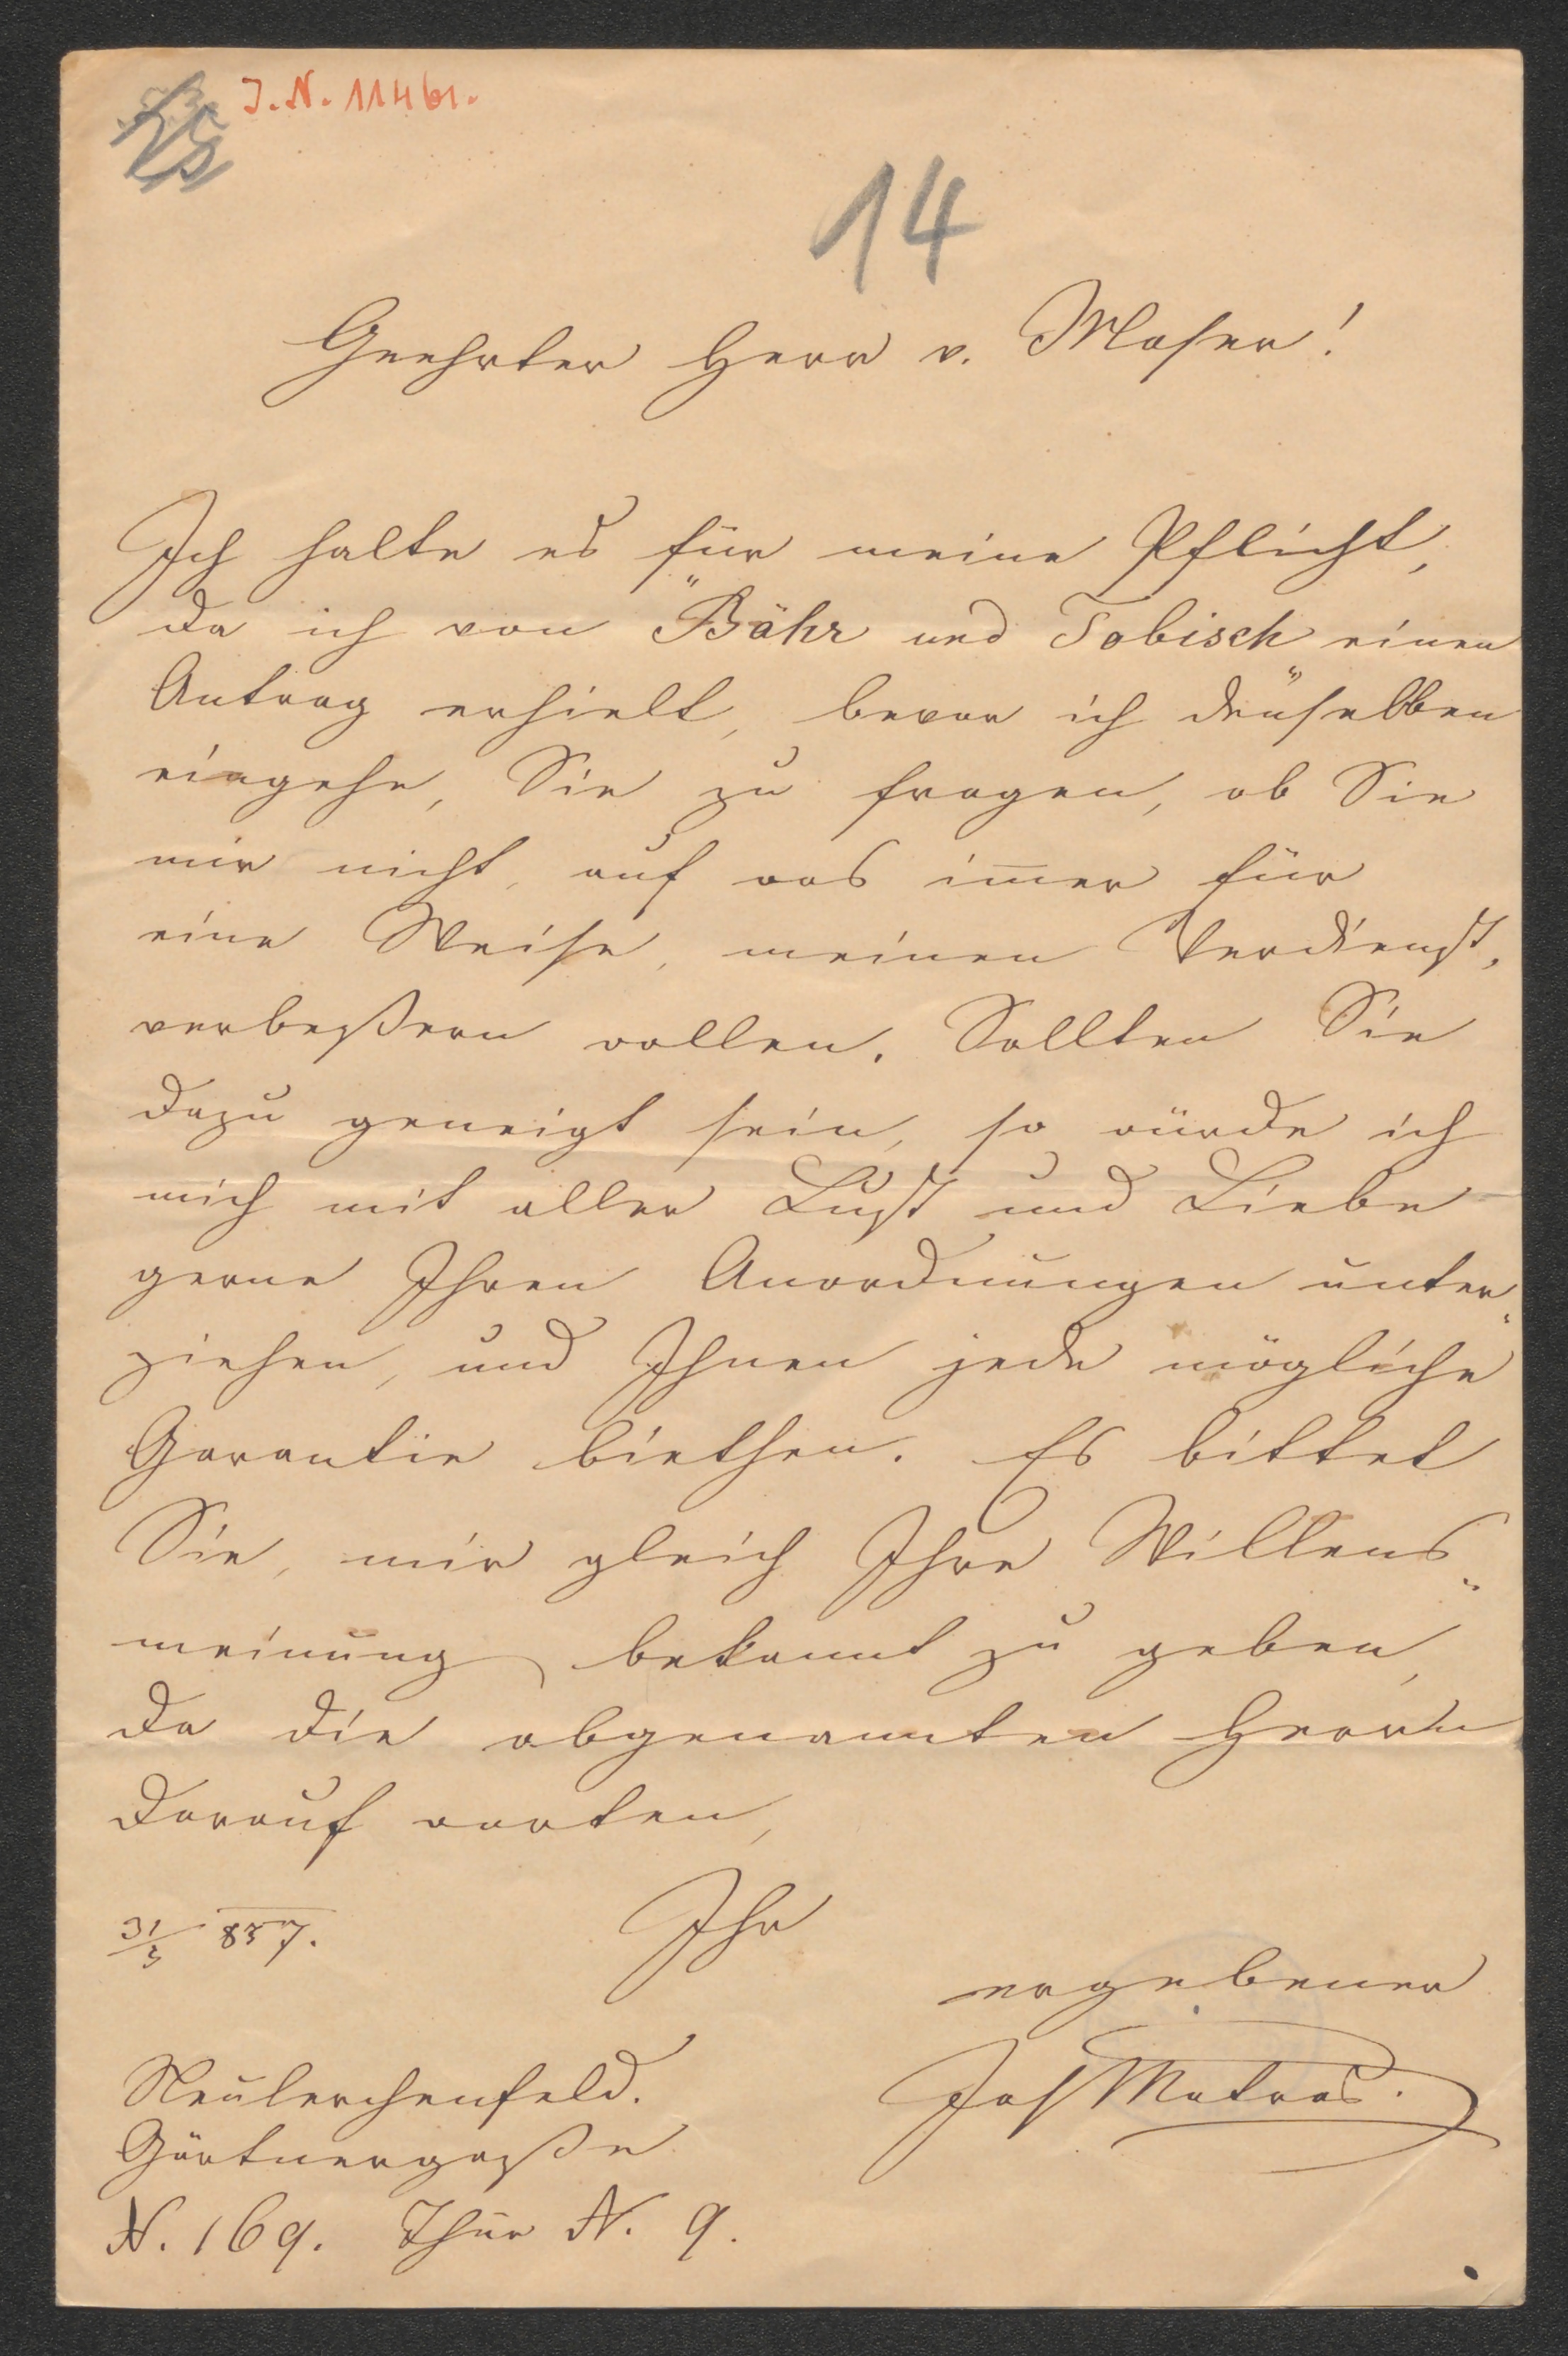 J.N. 11461.
14
Geehrter Herr v. Moser!
Ich halte es für meine Pflicht,
da ich von "Bähr und Tobisch" einen
Antrag erhielt, bevor ich denselben
eingehe, Sie zu fragen, ob Sie
mir nicht, auf was im̅er für
eine Weise, meinen Verdienst,
verbeßern wollen. Sollten Sie
dazu geneigt sein, so würde ich
mich mit aller Lust und Liebe
gerne Ihren Anordnungen unter„
ziehen, und Ihnen jede mögliche
Garantie biethen. Es bittet
Sie, mir gleich Ihre Willens„
meinung bekannt zu geben,
da die obgenannten Herrn
darauf warten,
31/3 857. Ihr
ergebener
Neulerchenfeld. Jos Matras.
Gärtnergaße
N. 169. Thür N. 9.